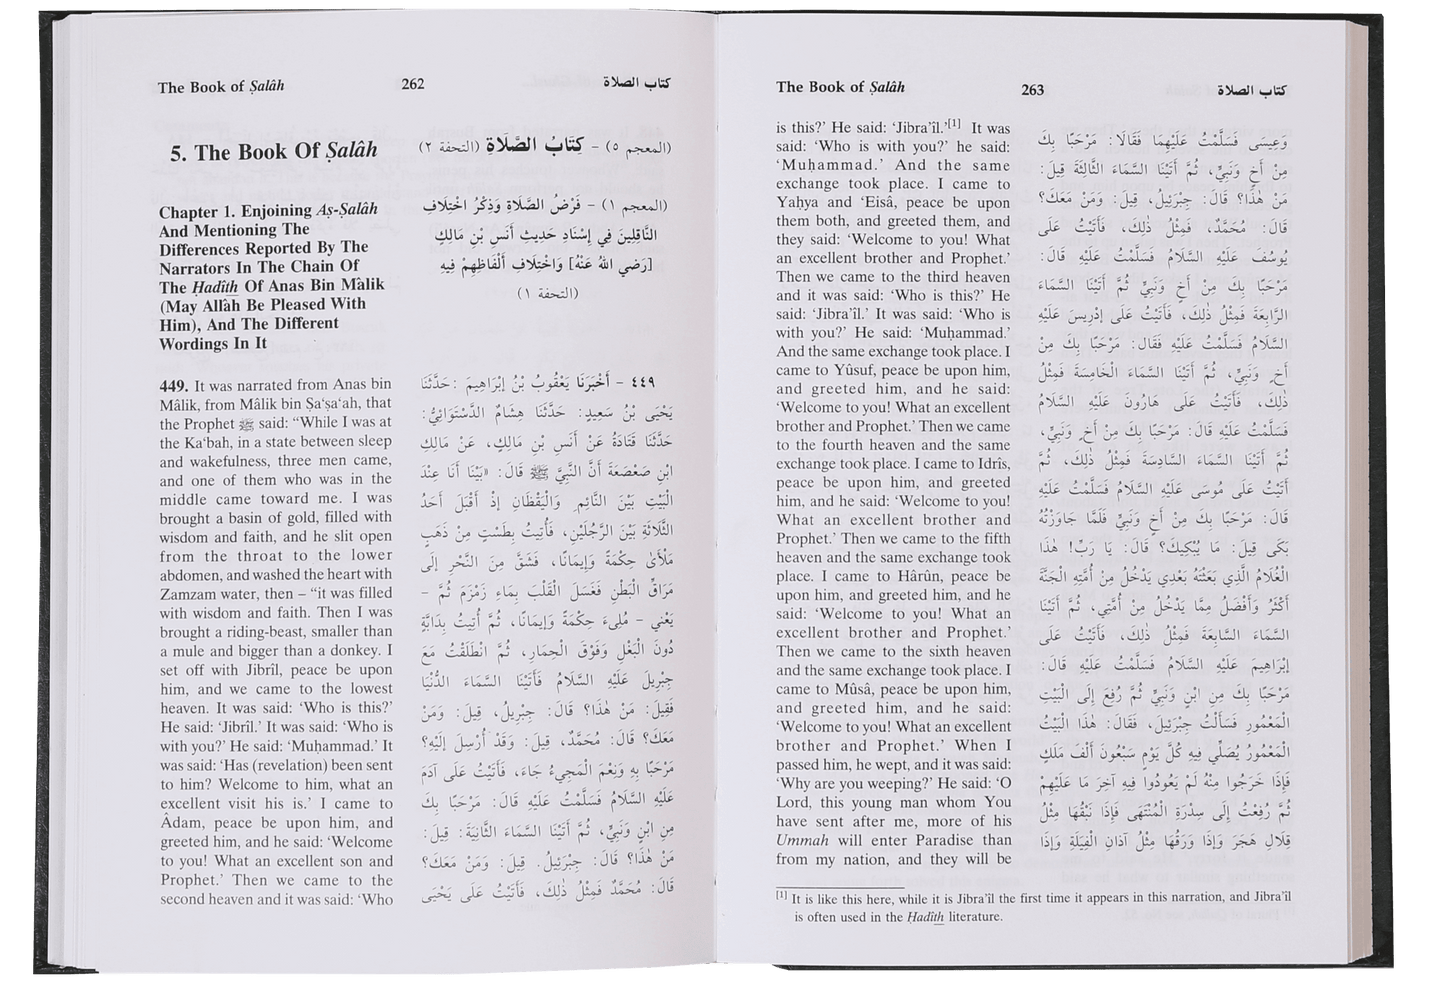 The Book of Ṣalâh 262 كتاب الصلاة
5. The Book Of Ṣalâh
Chapter 1. Enjoining Aṣ-Ṣalâh
And Mentioning The
Differences Reported By The
Narrators In The Chain Of
The Ḥadîth Of Anas Bin Mâlik
(May Allâh Be Pleased With
Him), And The Different
Wordings In It
449. It was narrated from Anas bin
Mâlik, from Mâlik bin Ṣa‘ṣa‘ah, that
the Prophet ﷺ said: “While I was at
the Ka‘bah, in a state between sleep
and wakefulness, three men came,
and one of them who was in the
middle came toward me. I was
brought a basin of gold, filled with
wisdom and faith, and he slit open
from the throat to the lower
abdomen, and washed the heart with
Zamzam water, then – “it was filled
with wisdom and faith. Then I was
brought a riding-beast, smaller than
a mule and bigger than a donkey. I
set off with Jibrîl, peace be upon
him, and we came to the lowest
heaven. It was said: ‘Who is this?’
He said: ‘Jibrîl.’ It was said: ‘Who is
with you?’ He said: ‘Muḥammad.’ It
was said: ‘Has (revelation) been sent
to him? Welcome to him, what an
excellent visit his is.’ I came to
Âdam, peace be upon him, and
greeted him, and he said: ‘Welcome
to you! What an excellent son and
Prophet.’ Then we came to the
second heaven and it was said: ‘Who
(المعجم ٥) – كِتَابُ الصَّلَاةِ (التحفة ٢)
(المعجم ١) – فَرْضُ الصَّلَاةِ وَذِكْرُ اخْتِلَافِ
النَّاقِلِينَ فِي إِسْنَادِ حَدِيثِ أَنَسِ بْنِ مَالِكٍ
[رَضِي اللهُ عَنْهُ] وَاخْتِلَافِ أَلْفَاظِهِمْ فِيهِ
(التحفة ١)
٤٤٩ – أَخْبَرَنَا يَعْقُوبُ بْنُ إِبْرَاهِيمَ: حَدَّثَنَا
يَحْيَى بْنُ سَعِيدٍ: حَدَّثَنَا هِشَامٌ الدَّسْتَوَائِيُّ:
حَدَّثَنَا قَتَادَةُ عَنْ أَنَسِ بْنِ مَالِكٍ، عَنْ مَالِكِ
ابْنِ صَعْصَعَةَ أَنَّ النَّبِيَّ ﷺ قَالَ: «بَيْنَا أَنَا عِنْدَ
الْبَيْتِ بَيْنَ النَّائِمِ وَالْيَقْظَانِ إِذْ أَقْبَلَ أَحَدُ
الثَّلَاثَةِ بَيْنَ الرَّجُلَيْنِ، فَأُتِيتُ بِطَسْتٍ مِنْ ذَهَبٍ
مَلْأَىٰ حِكْمَةً وَإِيمَانًا، فَشَقَّ مِنَ النَّحْرِ إِلَى
مَرَاقِّ الْبَطْنِ فَغَسَلَ الْقَلْبَ بِمَاءِ زَمْزَمَ ثُمَّ –
يَعْنِي – مُلِىءَ حِكْمَةً وَإِيمَانًا، ثُمَّ أُتِيتُ بِدَابَّةٍ
دُونَ الْبَغْلِ وَفَوْقَ الْحِمَارِ، ثُمَّ انْطَلَقْتُ مَعَ
جِبْرِيلَ عَلَيْهِ السَّلَامُ فَأَتَيْنَا السَّمَاءَ الدُّنْيَا
فَقِيلَ: مَنْ هٰذَا؟ قَالَ: جِبْرِيلُ، قِيلَ: وَمَنْ
مَعَكَ؟ قَالَ: مُحَمَّدٌ، قِيلَ: وَقَدْ أُرْسِلَ إِلَيْهِ؟
مَرْحَبًا بِهِ وَنِعْمَ الْمَجِيءُ جَاءَ، فَأَتَيْتُ عَلَى آدَمَ
عَلَيْهِ السَّلَامُ فَسَلَّمْتُ عَلَيْهِ قَالَ: مَرْحَبًا بِكَ
مِنِ ابْنٍ وَنَبِيٍّ، ثُمَّ أَتَيْنَا السَّمَاءَ الثَّانِيَةَ: قِيلَ:
مَنْ هٰذَا؟ قَالَ: جِبْرَئِيلُ. قِيلَ: وَمَنْ مَعَكَ؟
قَالَ: مُحَمَّدٌ فَمِثْلُ ذٰلِكَ، فَأَتَيْتُ عَلَى يَحْيَى
The Book of Ṣalâh 263 كتاب الصلاة
is this?’ He said: ‘Jibra’îl.’[1] It was
said: ‘Who is with you?’ he said:
‘Muḥammad.’ And the same
exchange took place. I came to
Yaḥya and ‘Eisâ, peace be upon
them both, and greeted them, and
they said: ‘Welcome to you! What
an excellent brother and Prophet.’
Then we came to the third heaven
and it was said: ‘Who is this?’ He
said: ‘Jibra’îl.’ It was said: ‘Who is
with you?’ He said: ‘Muḥammad.’
And the same exchange took place. I
came to Yûsuf, peace be upon him,
and greeted him, and he said:
‘Welcome to you! What an excellent
brother and Prophet.’ Then we came
to the fourth heaven and the same
exchange took place. I came to Idris,
peace be upon him, and greeted
him, and he said: ‘Welcome to you!
What an excellent brother and
Prophet.’ Then we came to the fifth
heaven and the same exchange took
place. I came to Hârûn, peace be
upon him, and greeted him, and he
said: ‘Welcome to you! What an
excellent brother and Prophet.’
Then we came to the sixth heaven
and the same exchange took place. I
came to Mûsâ, peace be upon him,
and greeted him, and he said:
‘Welcome to you! What an excellent
brother and Prophet.’ When I
passed him, he wept, and it was said:
‘Why are you weeping?’ He said: ‘O
Lord, this young man whom You
have sent after me, more of his
Ummah will enter Paradise than
from my nation, and they will be
وَعِيسَى فَسَلَّمْتُ عَلَيْهِمَا فَقَالَا: مَرْحَبًا بِكَ
مِنْ أَخٍ وَنَبِيٍّ، ثُمَّ أَتَيْنَا السَّمَاءَ الثَّالِثَةَ قِيلَ:
مَنْ هٰذَا؟ قَالَ: جِبْرَئِيلُ، قِيلَ: وَمَنْ مَعَكَ؟
قَالَ: مُحَمَّدٌ، فَمِثْلُ ذٰلِكَ، فَأَتَيْتُ عَلَى
يُوسُفَ عَلَيْهِ السَّلَامُ فَسَلَّمْتُ عَلَيْهِ قَالَ:
مَرْحَبًا بِكَ مِنْ أَخٍ وَنَبِيٍّ ثُمَّ أَتَيْنَا السَّمَاءَ
الرَّابِعَةَ فَمِثْلُ ذٰلِكَ، فَأَتَيْتُ عَلَى إِدْرِيسَ عَلَيْهِ
السَّلَامُ فَسَلَّمْتُ عَلَيْهِ فَقَالَ: مَرْحَبًا بِكَ مِنْ
أَخٍ وَنَبِيٍّ، ثُمَّ أَتَيْنَا السَّمَاءَ الْخَامِسَةَ فَمِثْلُ
ذٰلِكَ، فَأَتَيْتُ عَلَى هَارُونَ عَلَيْهِ السَّلَامُ
فَسَلَّمْتُ عَلَيْهِ قَالَ: مَرْحَبًا بِكَ مِنْ أَخٍ وَنَبِيٍّ،
ثُمَّ أَتَيْنَا السَّمَاءَ السَّادِسَةَ فَمِثْلُ ذٰلِكَ، ثُمَّ
أَتَيْتُ عَلَى مُوسَى عَلَيْهِ السَّلَامُ فَسَلَّمْتُ عَلَيْهِ
قَالَ: مَرْحَبًا بِكَ مِنْ أَخٍ وَنَبِيٍّ فَلَمَّا جَاوَزْتُهُ
بَكَى قِيلَ: مَا يُبْكِيكَ؟ قَالَ: يَا رَبِّ! هٰذَا
الْغُلَامُ الَّذِي بَعَثْتَهُ بَعْدِي يَدْخُلُ مِنْ أُمَّتِهِ الْجَنَّةَ
أَكْثَرُ وَأَفْضَلُ مِمَّا يَدْخُلُ مِنْ أُمَّتِي، ثُمَّ أَتَيْنَا
السَّمَاءَ السَّابِعَةَ فَمِثْلُ ذٰلِكَ، فَأَتَيْتُ عَلَى
إِبْرَاهِيمَ عَلَيْهِ السَّلَامُ فَسَلَّمْتُ عَلَيْهِ قَالَ:
مَرْحَبًا بِكَ مِنِ ابْنٍ وَنَبِيٍّ ثُمَّ رُفِعَ إِلَى الْبَيْتِ
الْمَعْمُورِ فَسَأَلْتُ جِبْرَئِيلَ، فَقَالَ: هٰذَا الْبَيْتُ
الْمَعْمُورُ يُصَلِّي فِيهِ كُلَّ يَوْمٍ سَبْعُونَ أَلْفَ مَلَكٍ
فَإِذَا خَرَجُوا مِنْهُ لَمْ يَعُودُوا فِيهِ آخِرَ مَا عَلَيْهِمْ
ثُمَّ رُفِعْتُ إِلَى سِدْرَةِ الْمُنْتَهَى فَإِذَا نَبْقُهَا مِثْلُ
قِلَالِ هَجَرَ وَإِذَا وَرَقُهَا مِثْلُ آذَانِ الْفِيَلَةِ وَإِذَا
[1] It is like this here, while it is Jibra’îl the first time it appears in this narration, and Jibra’îl
is often used in the Ḥadîth literature.